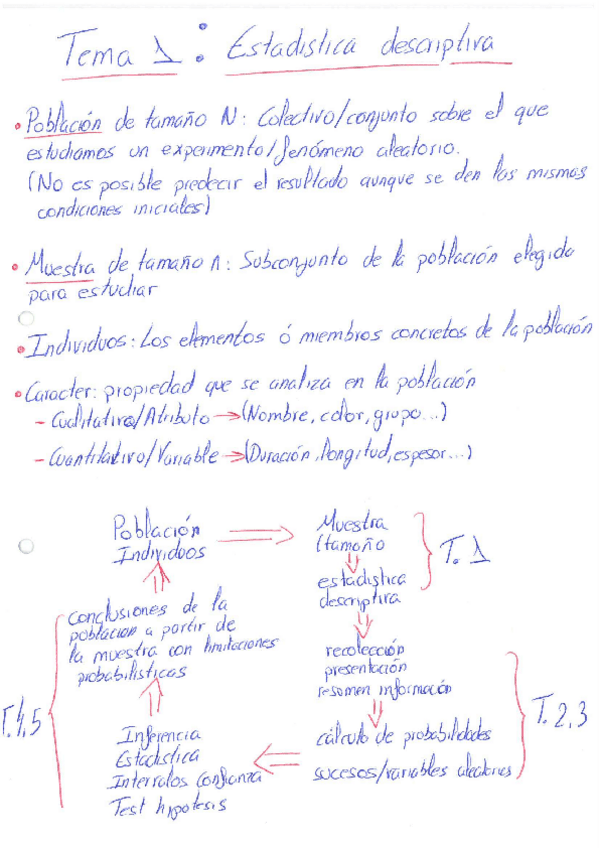 Tema 1: Estadística descriptiva
• Población de tamaño N: Colectivo/conjunto sobre el que
estudiamos un experimento/fenómeno aleatorio.
(No es posible predecir el resultado aunque se den las mismas
condiciones iniciales)
• Muestra de tamaño n: Subconjunto de la población elegido
para estudiar
• Individuos: Los elementos ó miembros concretos de la población
• Caracter: propiedad que se analiza en la población
- Cualitativo/Atributo → (Nombre, color, grupo...)
- Cuantitativo/Variable → (Duración, longitud, espesor...)
Población
Individuos
⇒
Muestra
(tamaño
⇓
estadística
descriptiva
T. 1
⇓
recolección
presentación
resumen información
⇓
cálculo de probabilidades
sucesos/variables aleatorias
T. 2,3
⇐
Inferencia
Estadística
Intervalos confianza
Test hipotesis
⇑
conclusiones de la
poblacion a partir de
la muestra con limitaciones
probabilísticas
⇑
T.4,5